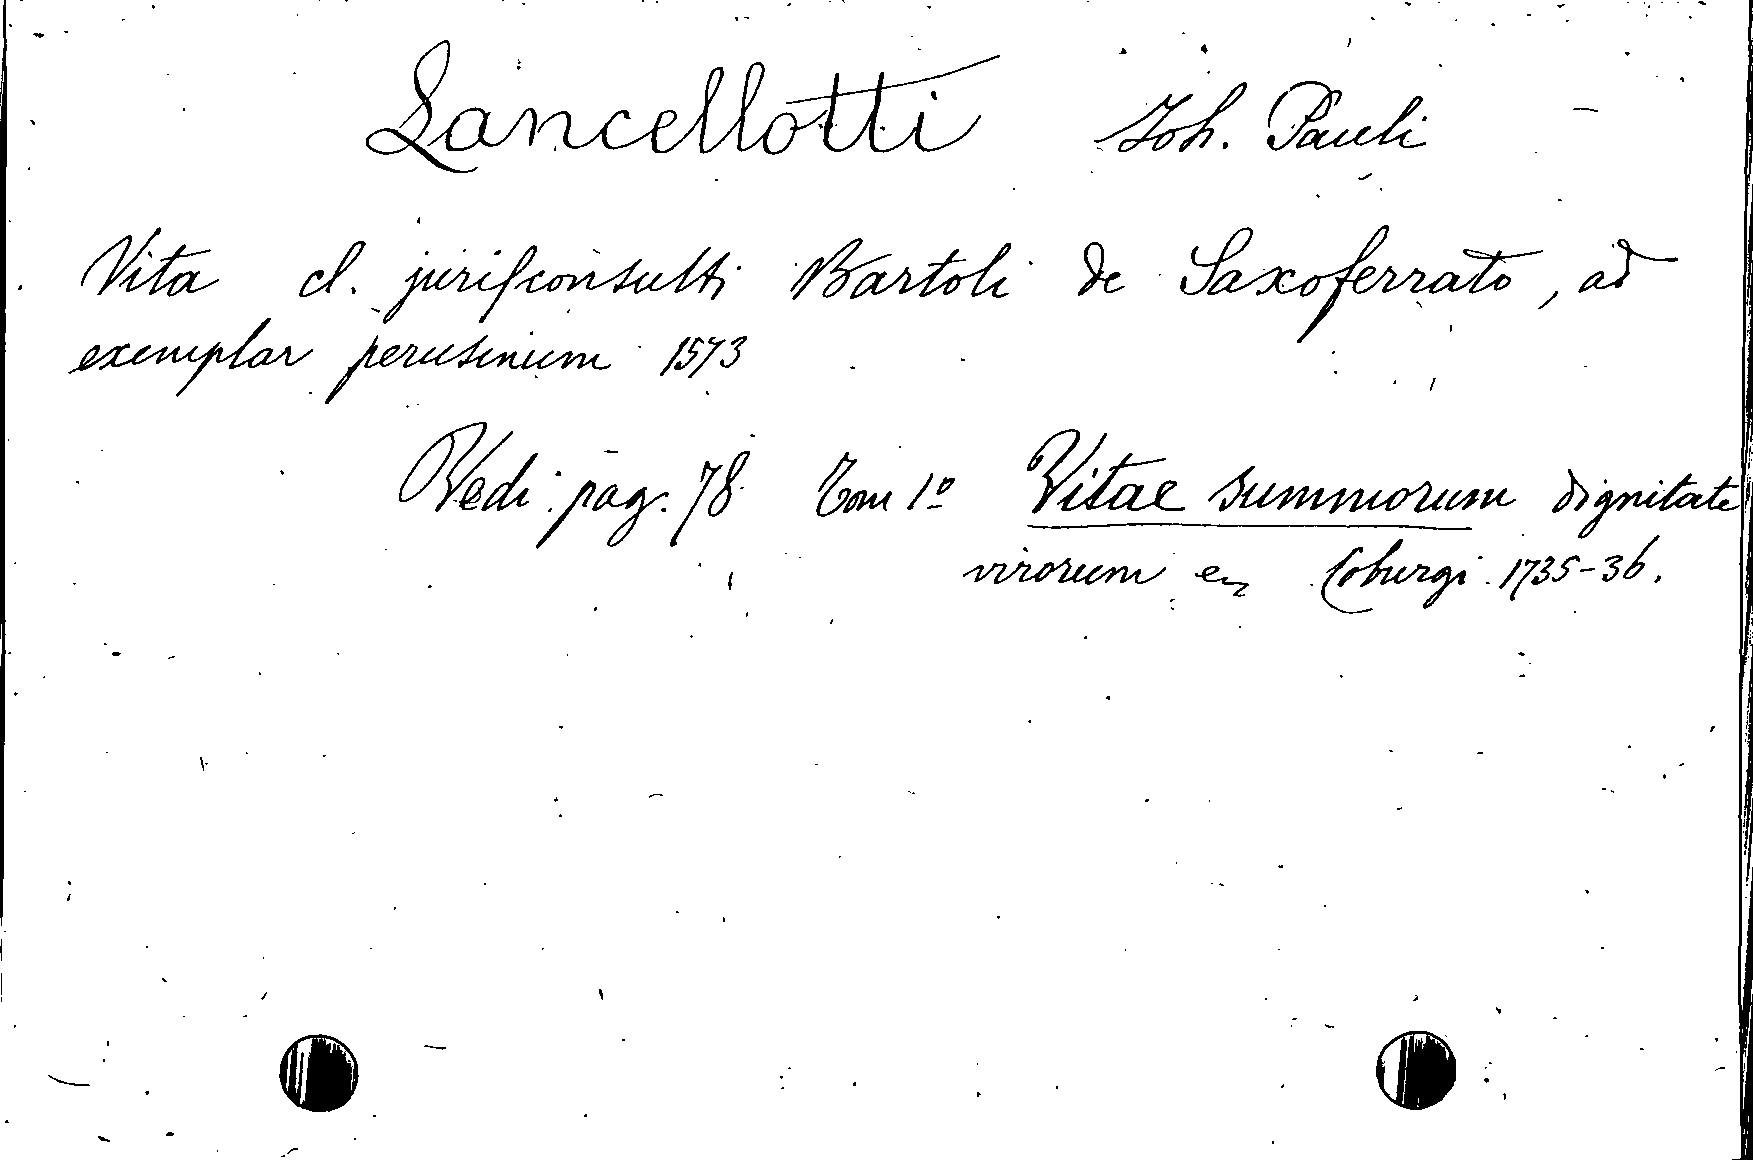 Lancellotti Joh. Pauli
Vita cl. jurisconsulti Bartoli de Saxoferrato, ad
exemplar perusinum 1573
Vedi pag. 78 Tom 1º Vitae summorum dignitate
virorum Coburgi 1735-36.